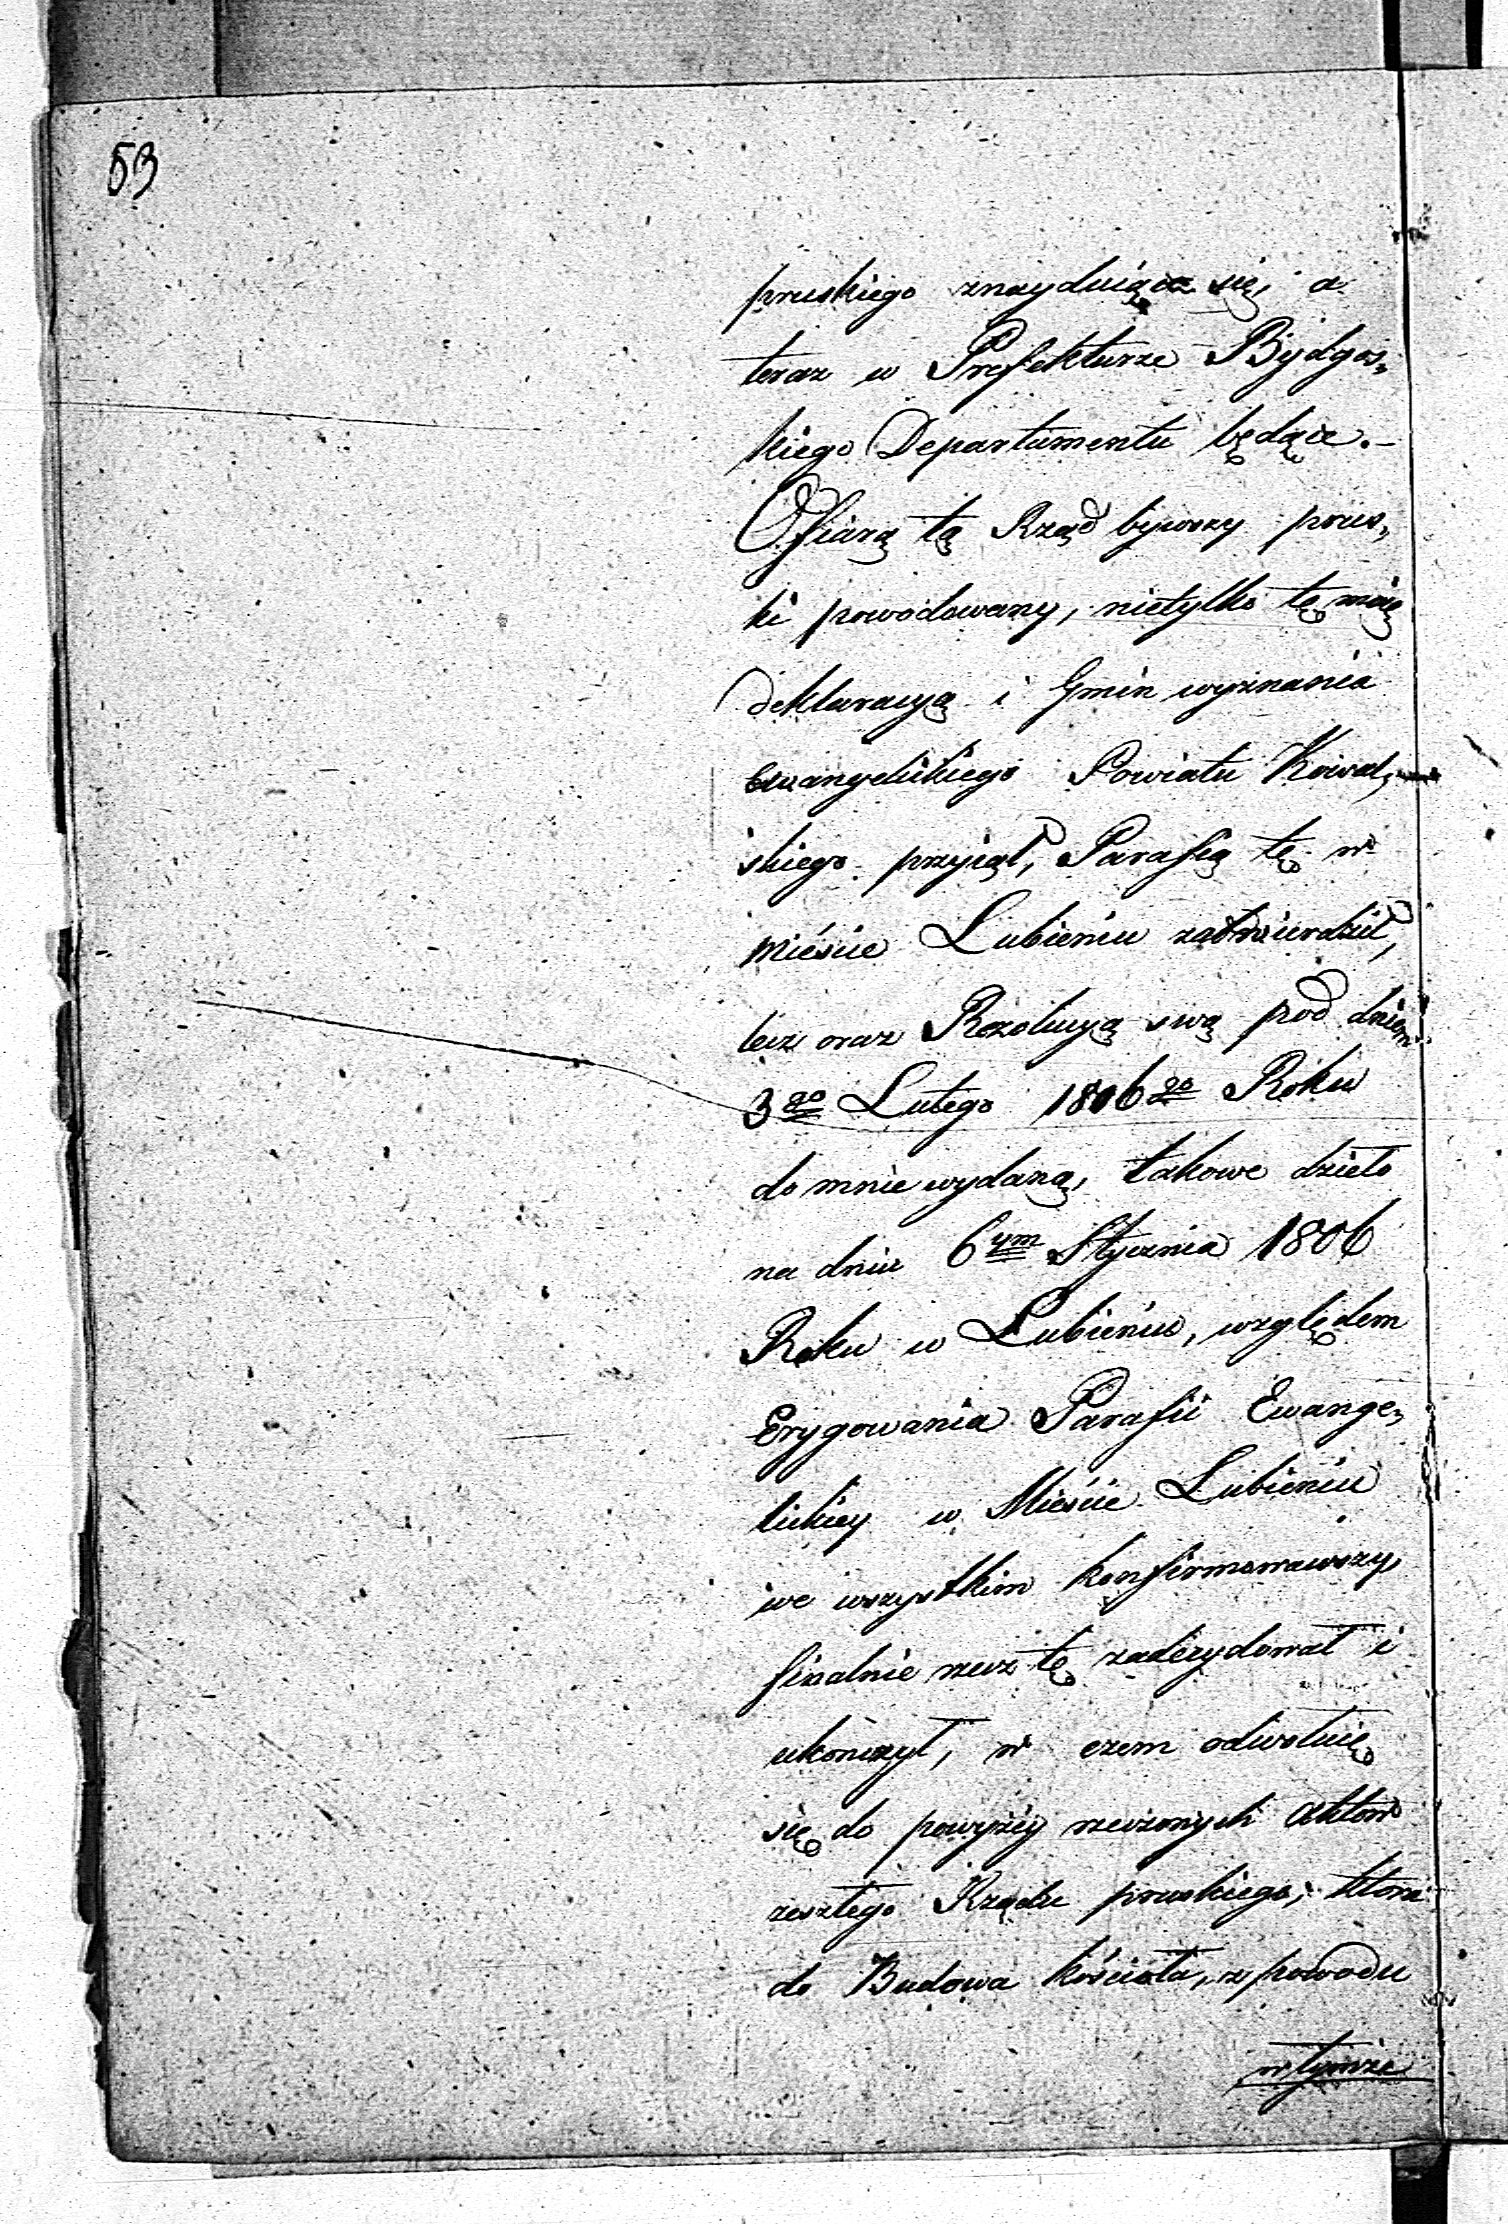 53
pruskiego znayduiące się, a
teraz w Prefekturze Bydgos„
kiego Departamentu będące.–
Ofiarą tą Rząd bywszy prus„
ki powodowany, nietylko tę moię
deklaracyą i Gmin wyznania
Ewangelickiego Powiatu Kowal„
skiego przyiął, Parafią tę w
Mieście Lubieniu zatwierdził,
lecz oraz Rezolucyą swą pod dniem
3go Lutego 1806go Roku
do mnie wydaną, takowe dzieło
na dniu 6ym Stycznia 1806
Roku w Lubieniu, względem
Erygowania Parafii Ewange„
lickiey w Mieście Lubieniu
we wszystkim konfirmowawszy,
finalnie rzecz tę zadecydował i
ukończył, w czem odwołuię
się do powyżey rzeczonych Aktów
zeszłego Rządu pruskiego; które
do Budowa kościoła, z powodu
w tymże